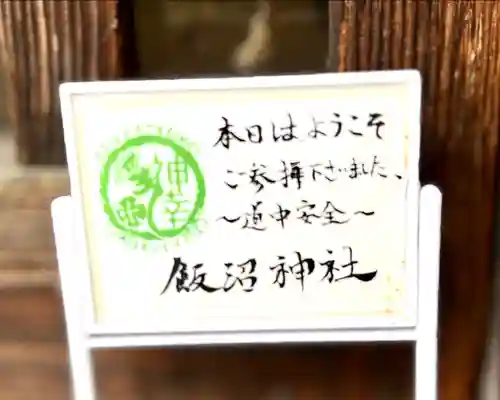 本日はようこそ
ご参拝下さいました、
～道中安全～
飯沼神社